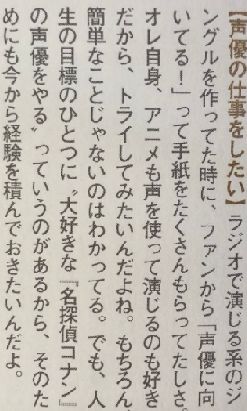 【声優の仕事をしたい】ラジオで演じる系のジ
ングルを作ってた時に、ファンから「声優に向
いてる！」って手紙をたくさんもらってたしさ。
オレ自身、アニメも声を使って演じるのも好き
だから、トライしてみたいんだよね。もちろん、
簡単なことじゃないのはわかってる。でも、人
生の目標のひとつに〝大好きな『名探偵コナン』
の声優をやる〟っていうのがあるから、そのた
めにも今から経験を積んでおきたいんだよ。